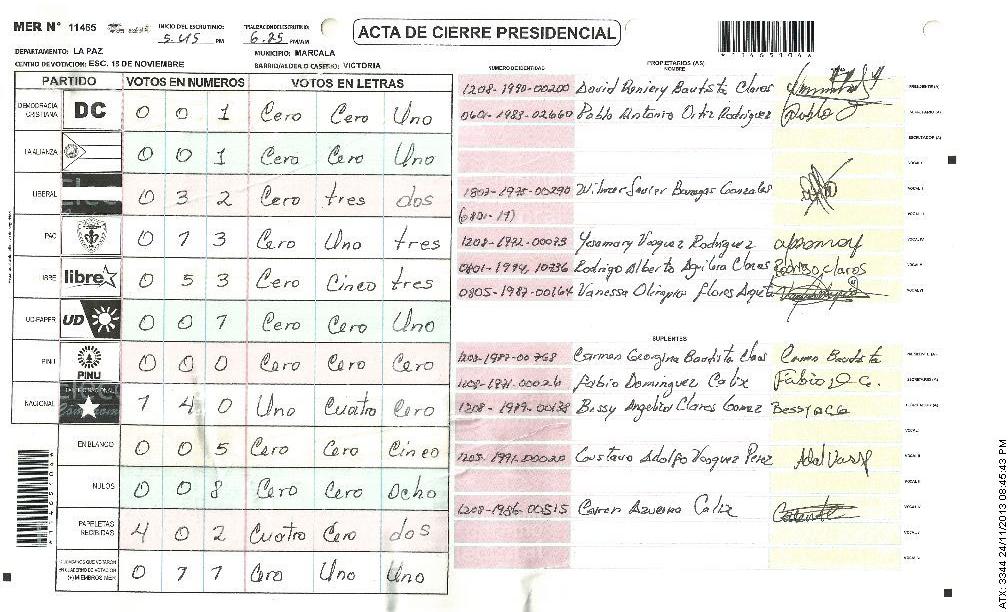 MER N° 11465 INICIO DEL ESCRUTINIO FINALIZACION ESCRUTINIO ACTA DE CIERRE PRESIDENCIAL
5:45 PM 6.25 PM/AM
DEPARTAMENTO: LA PAZ MUNICIPIO: MARCALA
CENTRO DE VOTACION: ESC. 15 DE NOVIEMBRE BARRIO/ALDEA O CASERIO: VICTORIA
PARTIDO VOTOS EN NUMEROS VOTOS EN LETRAS
DEMOCRACIA CRISTIANA DC 0 0 1 Cero Cero Uno
LA ALIANZA 0 0 1 Cero Cero Uno
LIBERAL 0 3 2 Cero tres dos
PAC 0 1 3 Cero Uno tres
LIBRE libre 0 5 3 Cero Cinco tres
UD-FAPER UD 0 0 1 Cero Cero Uno
PINU PINU 0 0 0 Cero Cero Cero
NACIONAL 1 4 0 Uno Cuatro Cero
EN BLANCO 0 0 5 Cero Cero Cinco
NULOS 0 0 8 Cero Cero Ocho
PAPELETAS RECIBIDAS 4 0 2 Cuatro Cero dos
MIEMBROS MER 0 1 1 Cero Uno Uno
NUMERO DE IDENTIDAD PROPIETARIOS (AS)
NOMBRE
1208-1990-00200 David Bautista Claros
0601-1983-02660 Pablo Antonio Ortiz Rodriguez Pablo O
Wilmer Javier Gonzales
1208-1972-00093 Yesmary Vasquez Rodriguez
Rodrigo Alberto Aguilera Claros Rodrigo Claros
0805-1987-00164 Vanessa Olimpia Flores
SUPLENTES
Carmen Georgina Bautista Claros Carmen Bautista
1208-1971-00026 Fabio Dominguez Calix Fabio D C.
1208-1979-00138 Bessy Angelica Claros Gomez Bessy
Gustavo Adolfo Vasquez Perez
1208-1986-00515 Calix
ATX: 3344 24/11/2013 08:45:43 PM